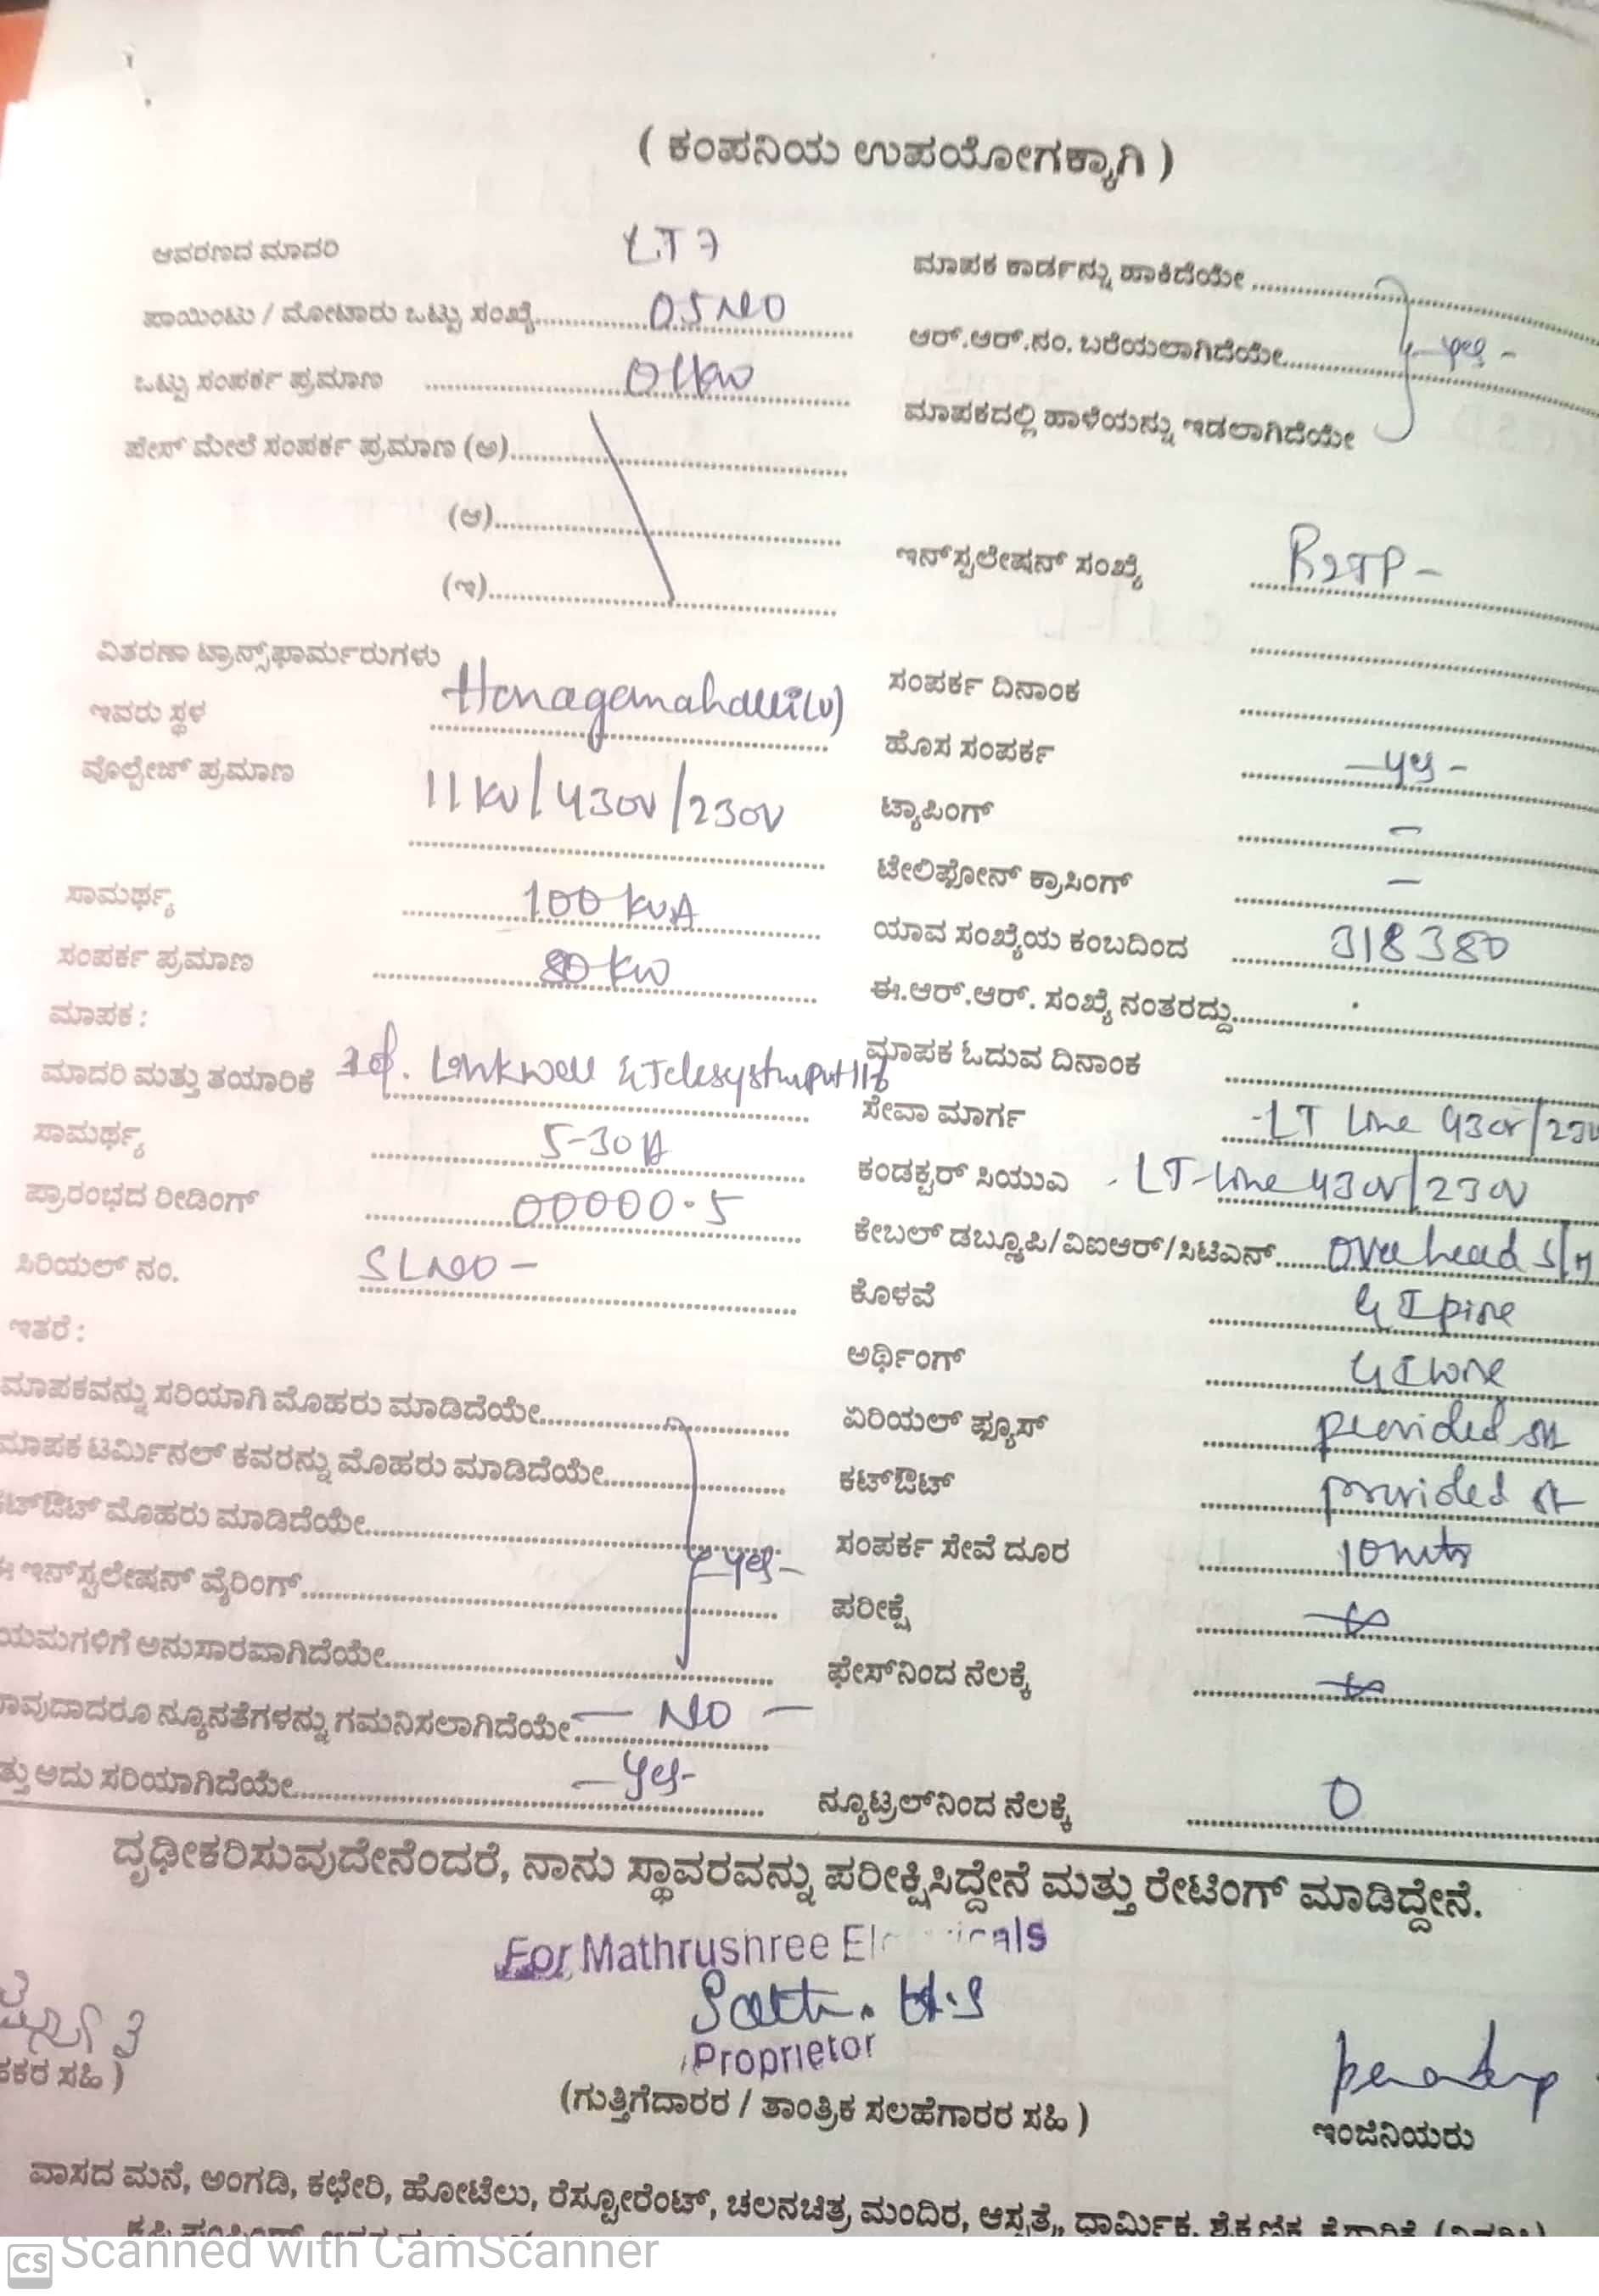 ( ಕಂಪನಿಯ ಉಪಯೋಗಕ್ಕಾಗಿ )
ಆವರಣದ ಮಾದರಿ LT 7
ಪಾಯಿಂಟು / ಮೋಟಾರು ಒಟ್ಟು ಸಂಖ್ಯೆ 05 NO
ಒಟ್ಟು ಸಂಪರ್ಕ ಪ್ರಮಾಣ 01kw
ಪೇಸ್ ಮೇಲೆ ಸಂಪರ್ಕ ಪ್ರಮಾಣ (ಅ)
(ಆ)
(ಇ)
ವಿತರಣಾ ಟ್ರಾನ್ಸ್‌ಫಾರ್ಮರುಗಳು
ಇವರು ಸ್ಥಳ Honagemahalli(v)
ವೊಲ್ಟೇಜ್ ಪ್ರಮಾಣ 11 KV/430V/230V
ಸಾಮರ್ಥ್ಯ 100 KVA
ಸಂಪರ್ಕ ಪ್ರಮಾಣ 80 KW
ಮಾಪಕ :
ಮಾದರಿ ಮತ್ತು ತಯಾರಿಕೆ Linkwell Telesystms pvt ltd
ಸಾಮರ್ಥ್ಯ 5-30 A
ಪ್ರಾರಂಭದ ರೀಡಿಂಗ್ 00000.5
ಸಿರಿಯಲ್ ನಂ. SL NO -
ಇತರೆ :
ಮಾಪಕವನ್ನು ಸರಿಯಾಗಿ ಮೊಹರು ಮಾಡಿದೆಯೇ
ಮಾಪಕ ಟರ್ಮಿನಲ್ ಕವರನ್ನು ಮೊಹರು ಮಾಡಿದೆಯೇ
ಕಟ್‌ಔಟ್ ಮೊಹರು ಮಾಡಿದೆಯೇ
ಈ ಇನ್‌ಸ್ಟಲೇಷನ್ ವೈರಿಂಗ್ yes -
ಯಮಗಳಿಗೆ ಅನುಸಾರವಾಗಿದೆಯೇ
ಾವುದಾದರೂ ನ್ಯೂನತೆಗಳನ್ನು ಗಮನಿಸಲಾಗಿದೆಯೇ — NO —
ತ್ತು ಅದು ಸರಿಯಾಗಿದೆಯೇ — yes -
ಮಾಪಕ ಕಾರ್ಡನ್ನು ಹಾಕಿದೆಯೇ
ಆರ್.ಆರ್.ನಂ. ಬರೆಯಲಾಗಿದೆಯೇ yes -
ಮಾಪಕದಲ್ಲಿ ಹಾಳೆಯನ್ನು ಇಡಲಾಗಿದೆಯೇ
ಇನ್‌ಸ್ಟಲೇಷನ್ ಸಂಖ್ಯೆ
ಸಂಪರ್ಕ ದಿನಾಂಕ
ಹೊಸ ಸಂಪರ್ಕ — yes -
ಟ್ಯಾಪಿಂಗ್ —
ಟೇಲಿಫೋನ್ ಕ್ರಾಸಿಂಗ್ —
ಯಾವ ಸಂಖ್ಯೆಯ ಕಂಬದಿಂದ 318380
ಈ.ಆರ್.ಆರ್. ಸಂಖ್ಯೆ ನಂತರದ್ದು
ಮಾಪಕ ಓದುವ ದಿನಾಂಕ
ಸೇವಾ ಮಾರ್ಗ - LT Line 430V/230
ಕಂಡಕ್ಟರ್ ಸಿಯುಎ - LT-Line 430V/230V
ಕೇಬಲ್ ಡಬ್ಲೂಪಿ/ವಿಐಆರ್/ಸಿಟಿಎನ್ overhead s/m
ಕೊಳವೆ GI pipe
ಅರ್ಥಿಂಗ್ GI wire
ಏರಿಯಲ್ ಫ್ಯೂಸ್ provided
ಕಟ್‌ಔಟ್ provided
ಸಂಪರ್ಕ ಸೇವೆ ದೂರ 10 mtr
ಪರೀಕ್ಷೆ
ಫೇಸ್‌ನಿಂದ ನೆಲಕ್ಕೆ
ನ್ಯೂಟ್ರಲ್‌ನಿಂದ ನೆಲಕ್ಕೆ 0
ದೃಢೀಕರಿಸುವುದೇನೆಂದರೆ, ನಾನು ಸ್ಥಾವರವನ್ನು ಪರೀಕ್ಷಿಸಿದ್ದೇನೆ ಮತ್ತು ರೇಟಿಂಗ್ ಮಾಡಿದ್ದೇನೆ.
For Mathrushree
Proprietor
ಕಕರ ಸಹಿ )
(ಗುತ್ತಿಗೆದಾರರ / ತಾಂತ್ರಿಕ ಸಲಹೆಗಾರರ ಸಹಿ )
ಇಂಜಿನಿಯರು
ವಾಸದ ಮನೆ, ಅಂಗಡಿ, ಕಛೇರಿ, ಹೋಟೆಲು, ರೆಸ್ಟೋರೆಂಟ್, ಚಲನಚಿತ್ರ ಮಂದಿರ, ಆಸ್ಪತ್ರೆ, ಧಾರ್ಮಿಕ,
CS Scanned with CamScanner